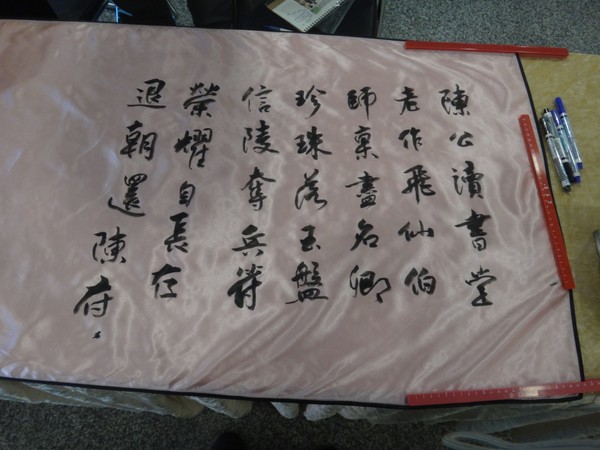 陳公讀書堂
老作飛仙伯
師稟盡名卿
珍珠落玉盤
信陵奪兵符
榮耀自長在
退朝還陳府